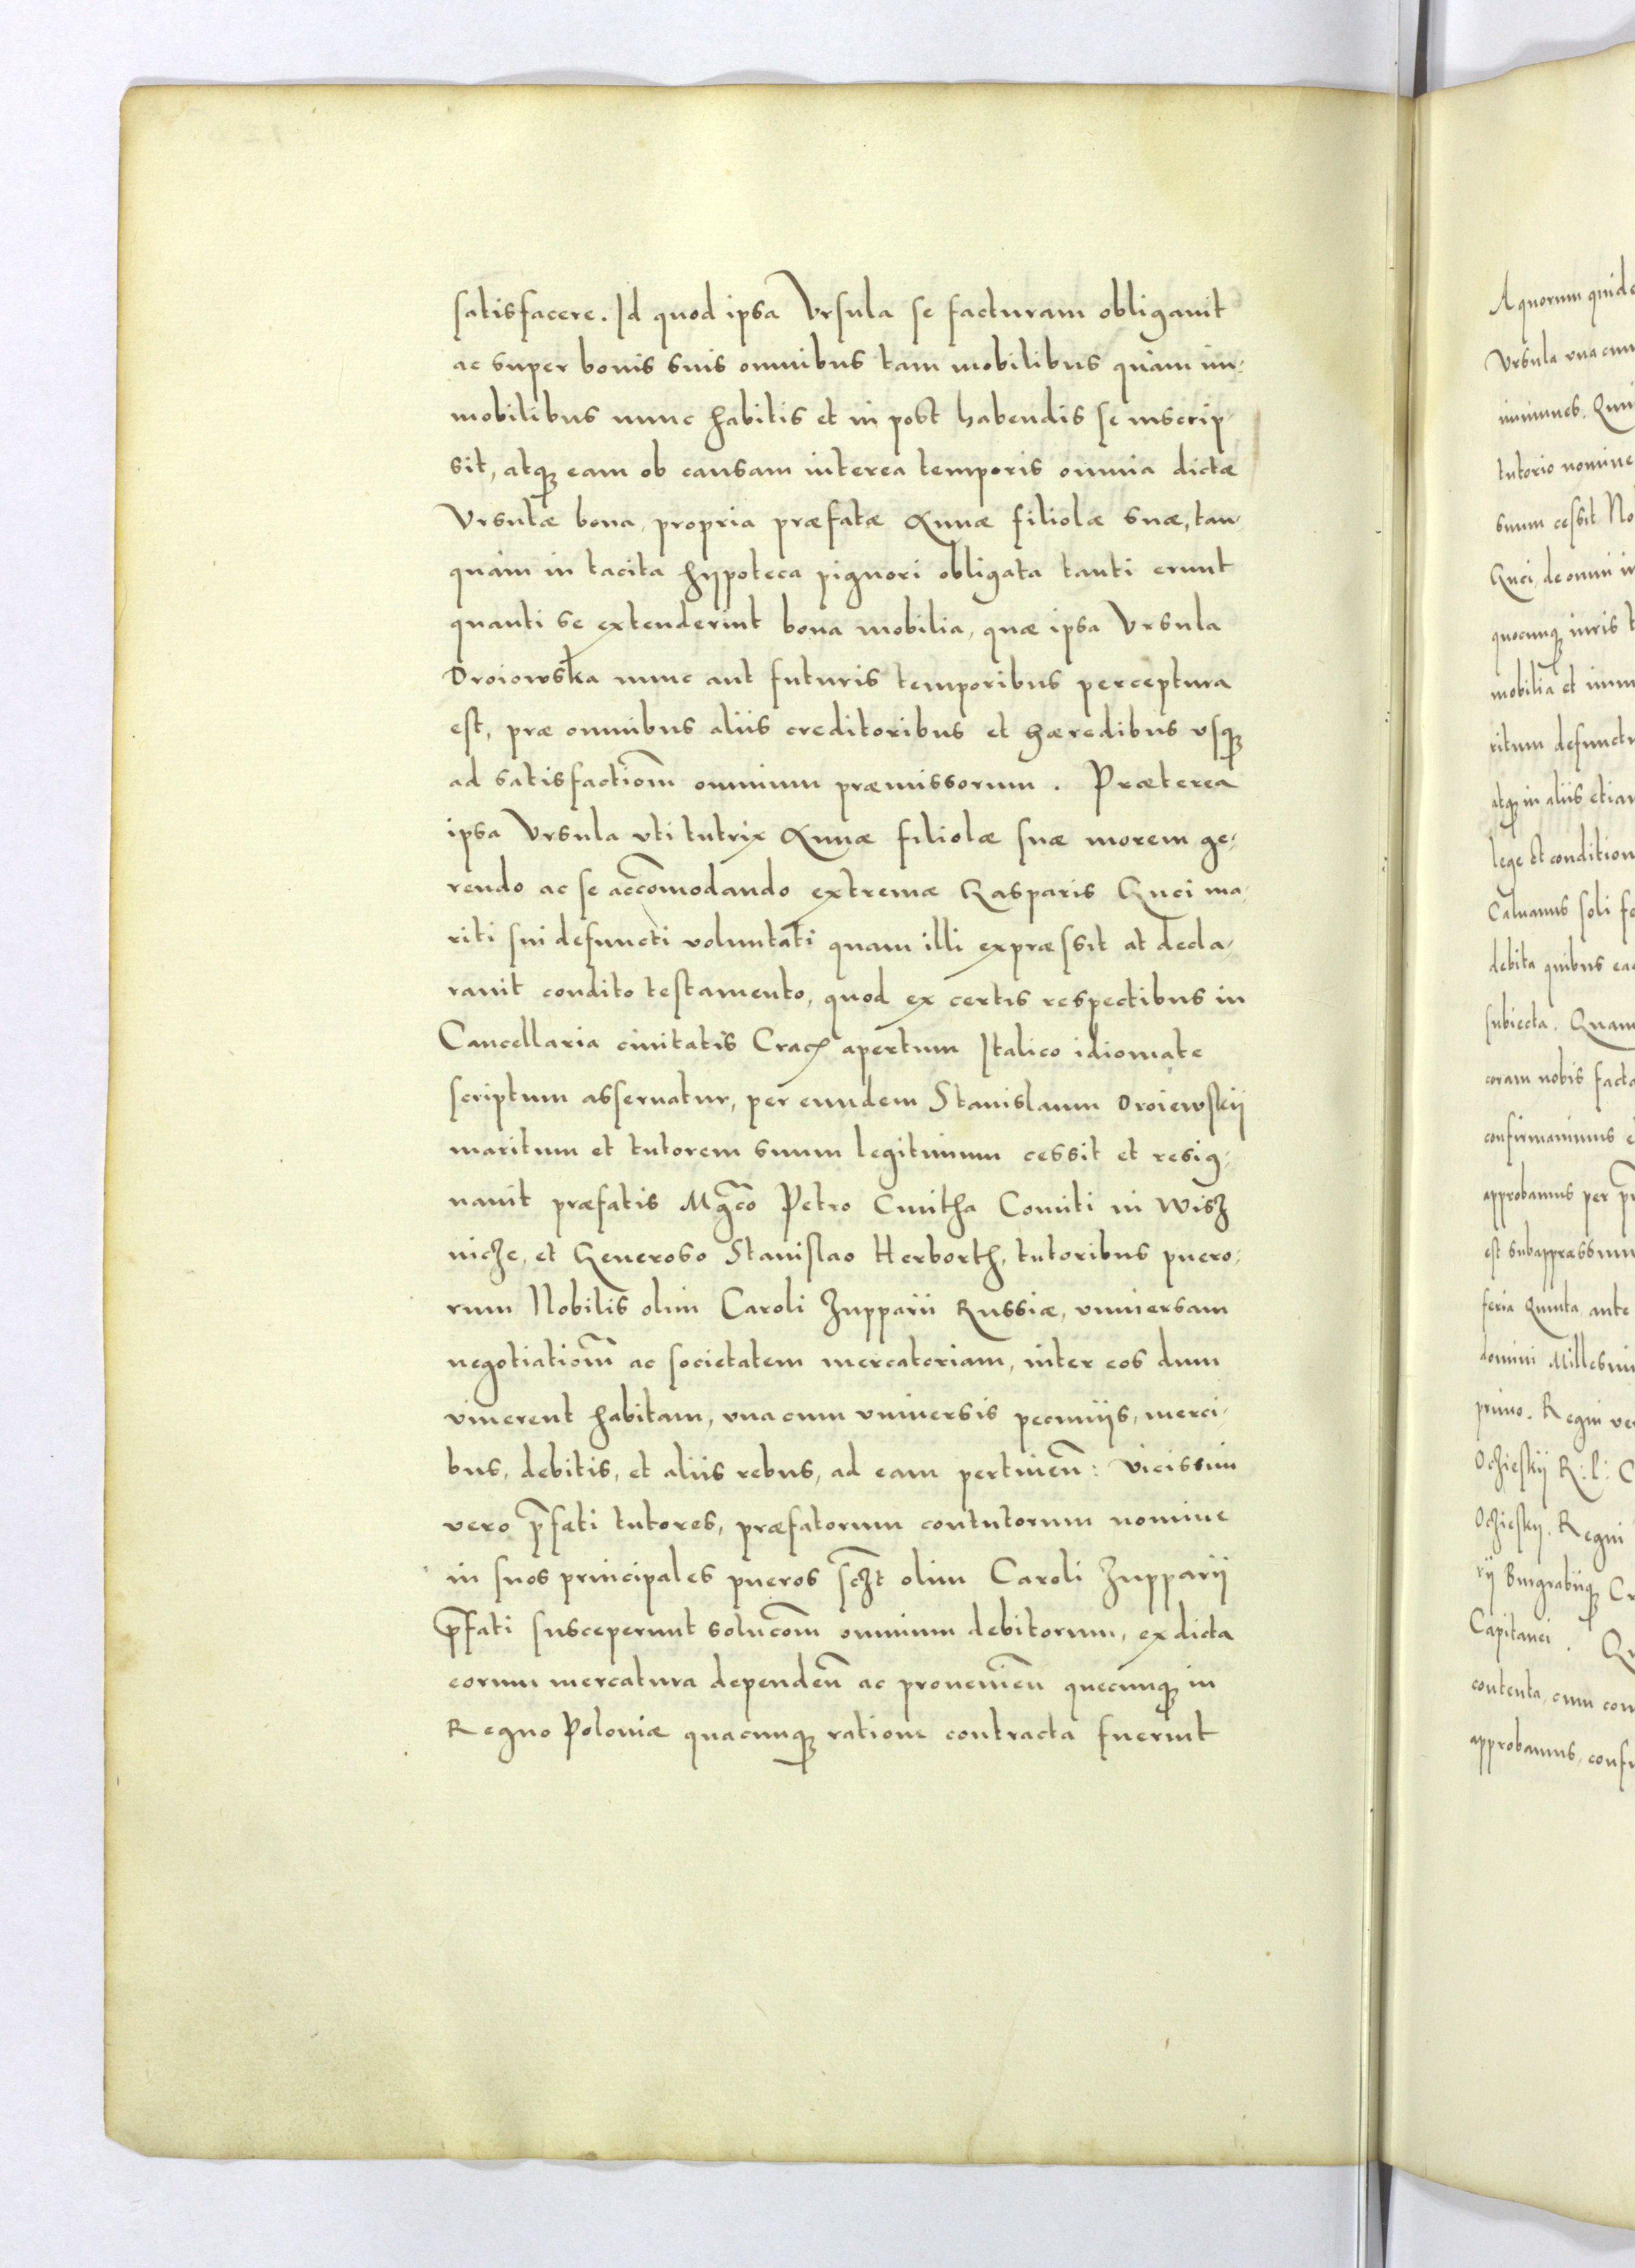 satisfacere. Id quod ipsa Vrsula se facturam obligauit
ac super bonis suis omnibus tam mobilibus quàm im-
mobilibus nunc habitis et in post habendis se inscrip-
sit, atq₃ eam ob causam interea temporis omnia dictæ
Vrsulæ bona, propria præfatæ Annæ filiolæ suæ, tan-
quàm in tacita hypoteca pignori obligata tanti erunt
quanti se extenderint bona mobilia, quæ ipsa Vrsula
Droiowska nunc aut futuris temporibus perceptura
est, præ omnibus aliis creditoribus et hæredibus vsq₃
ad satisfactiōm omnium præmissorum. Præterea
ipsa Vrsula vti tutrix Annæ filiolæ suæ morem ge-
rendo ac se accōmodando extremæ Gasparis Guci ma-
riti sui defuncti voluntati quam illi expræssit at decla-
rauit condito testamento, quod ex certis respectibus in
Cancellaria ciuitatis Crac͛ apertum Italico idiomate
scriptum asseruatur, per eundem Stanislaum Droiewskij
maritum et tutorem suum legitimum cessit et resig-
nauit præfatis Mgc̄o Petro Cmitha Comiti in Wisz
nicze, et Generoso Stanislao Herborth, tutoribus puero-
rum Nobilis olim Caroli Zupparii Russiæ, vniuersam
negotiatiōm ac societatem mercatoriam, inter eos dum
viuerent habitam, vna cum vniuersis pecuniis, merci-
bus, debitis, et aliis rebus, ad eam pertineñ: vicissim
vero p̄fati tutores, præfatorum contutorum nomine
in suos principales pueros sczt olim Caroli Zupparij
p̄fati susceperunt solucōm omnium debitorum, ex dicta
eorum mercatura dependeñ ac prouenieñ quecunq₃ in
Regno Poloniæ quacunq₃ ratione contracta fuerint
A quorum
Vrsula vna cum
immunes.
tutorio nomine
suum cessit
Guci, de omni
quocunq₃ iuris
mobilia et
ritum
atq₃ in aliis
lege et
Caluanus soli
debita quibus
subiecta.
coram nobis
confirmauimus
approbamus per
est
feria Quinta ante
domini
primo. Regni
Oczieskij R: l:
Oczieskij. Regni
rij Burgrabiiq₃
Capitanei.
contenta, cum
approbamus,